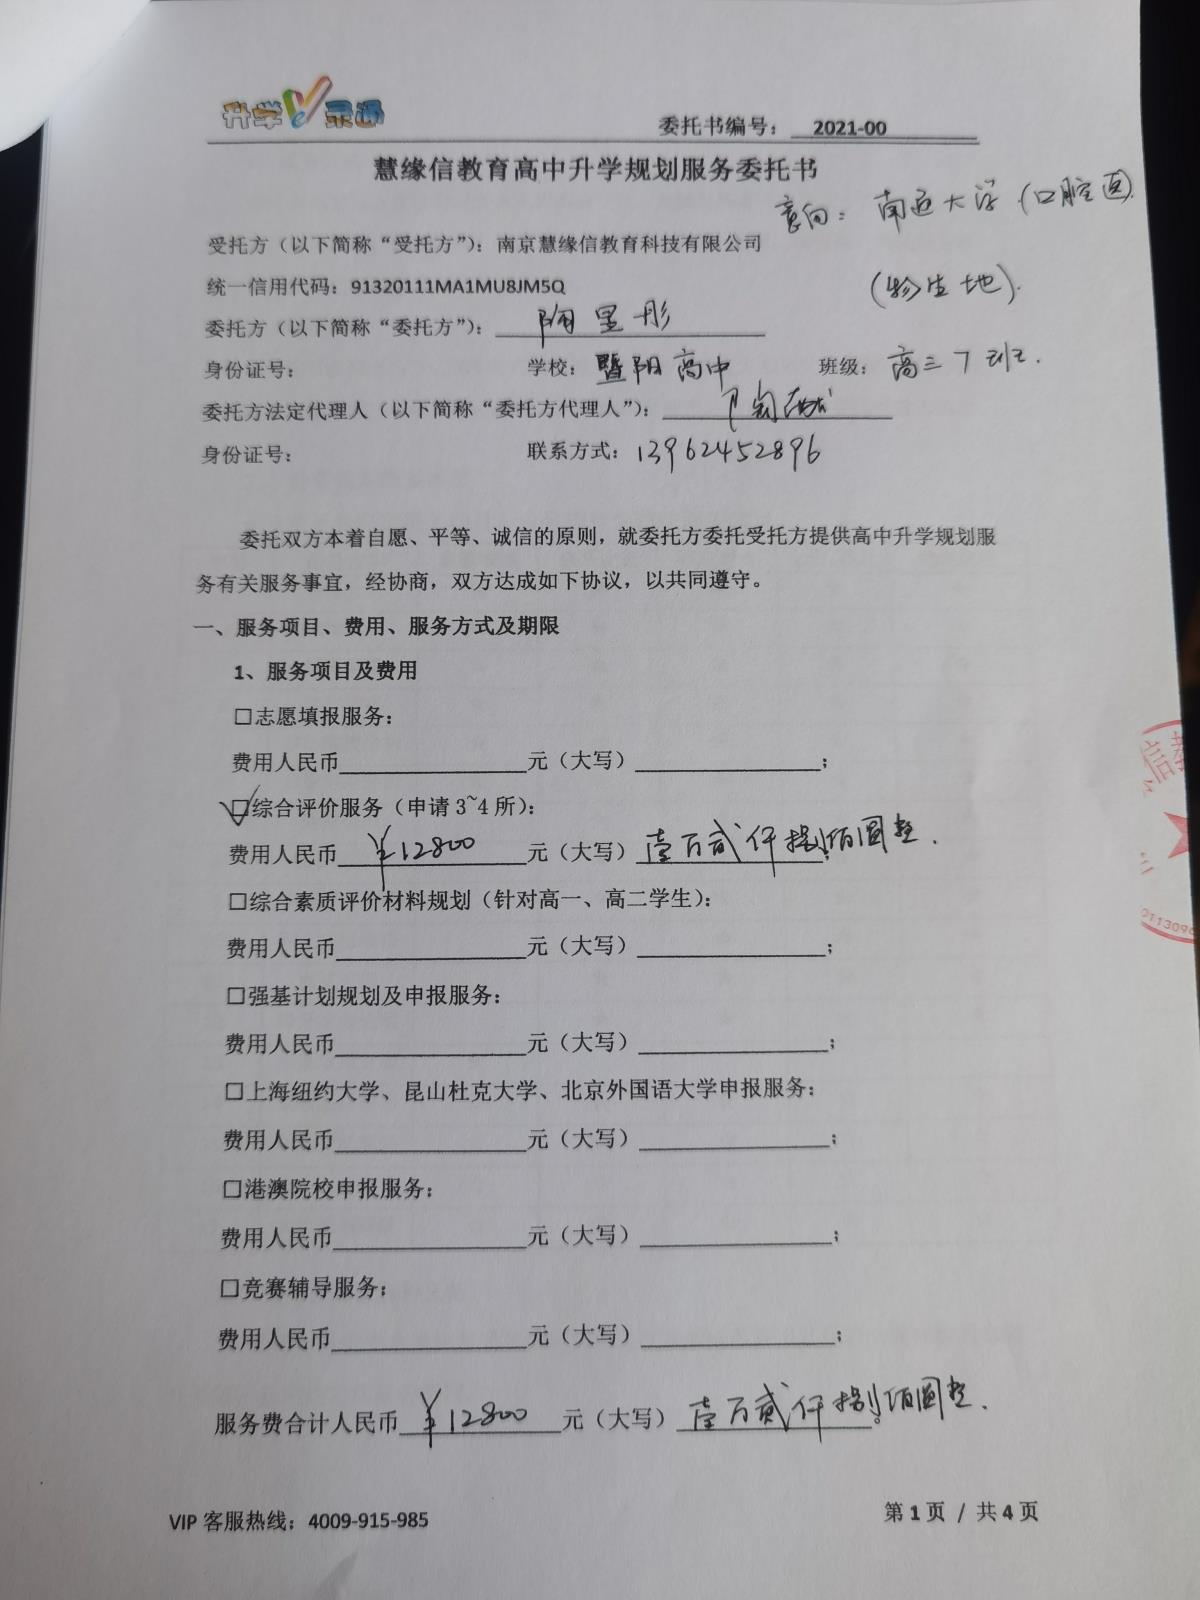 升学e录通
委托书编号： 2021-00
慧缘信教育高中升学规划服务委托书
意向：南通大学（口腔医）
受托方（以下简称“受托方”）：南京慧缘信教育科技有限公司
统一信用代码：91320111MA1MU8JM5Q
（物生地）.
委托方（以下简称“委托方”）： 陶昱彤
身份证号： 学校：暨阳高中 班级：高三7班.
委托方法定代理人（以下简称“委托方代理人”）： 陶
身份证号： 联系方式：13962452896
委托双方本着自愿、平等、诚信的原则，就委托方委托受托方提供高中升学规划服
务有关服务事宜，经协商，双方达成如下协议，以共同遵守。
一、服务项目、费用、服务方式及期限
1、服务项目及费用
□志愿填报服务：
费用人民币__________元（大写）__________；
☑综合评价服务（申请3~4所）：
费用人民币¥12800元（大写）壹万贰仟捌佰圆整.；
□综合素质评价材料规划（针对高一、高二学生）：
费用人民币__________元（大写）__________；
□强基计划规划及申报服务：
费用人民币__________元（大写）__________；
□上海纽约大学、昆山杜克大学、北京外国语大学申报服务：
费用人民币__________元（大写）__________；
□港澳院校申报服务：
费用人民币__________元（大写）__________；
□竞赛辅导服务：
费用人民币__________元（大写）__________；
服务费合计人民币¥12800元（大写）壹万贰仟捌佰圆整.。
VIP 客服热线：4009-915-985 第1页 / 共4页
信教
0113096